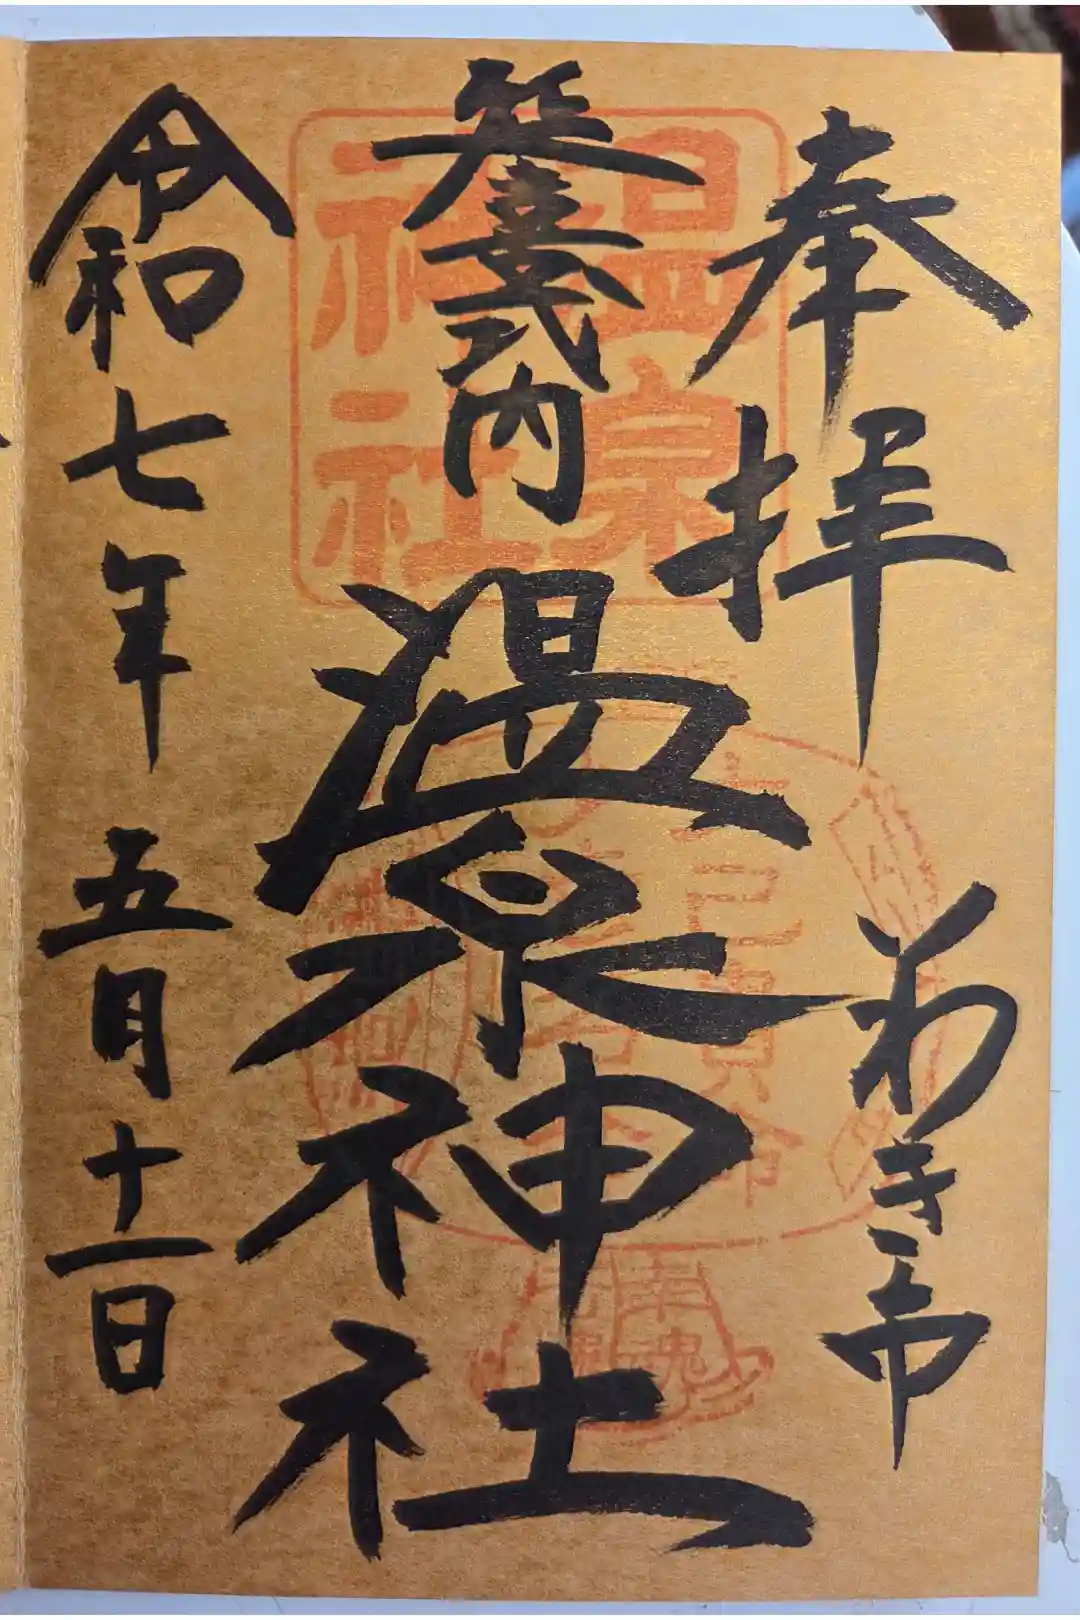 奉拝
わき市
延喜式内
温泉神社
令和七年
五月十一日
温泉
神社